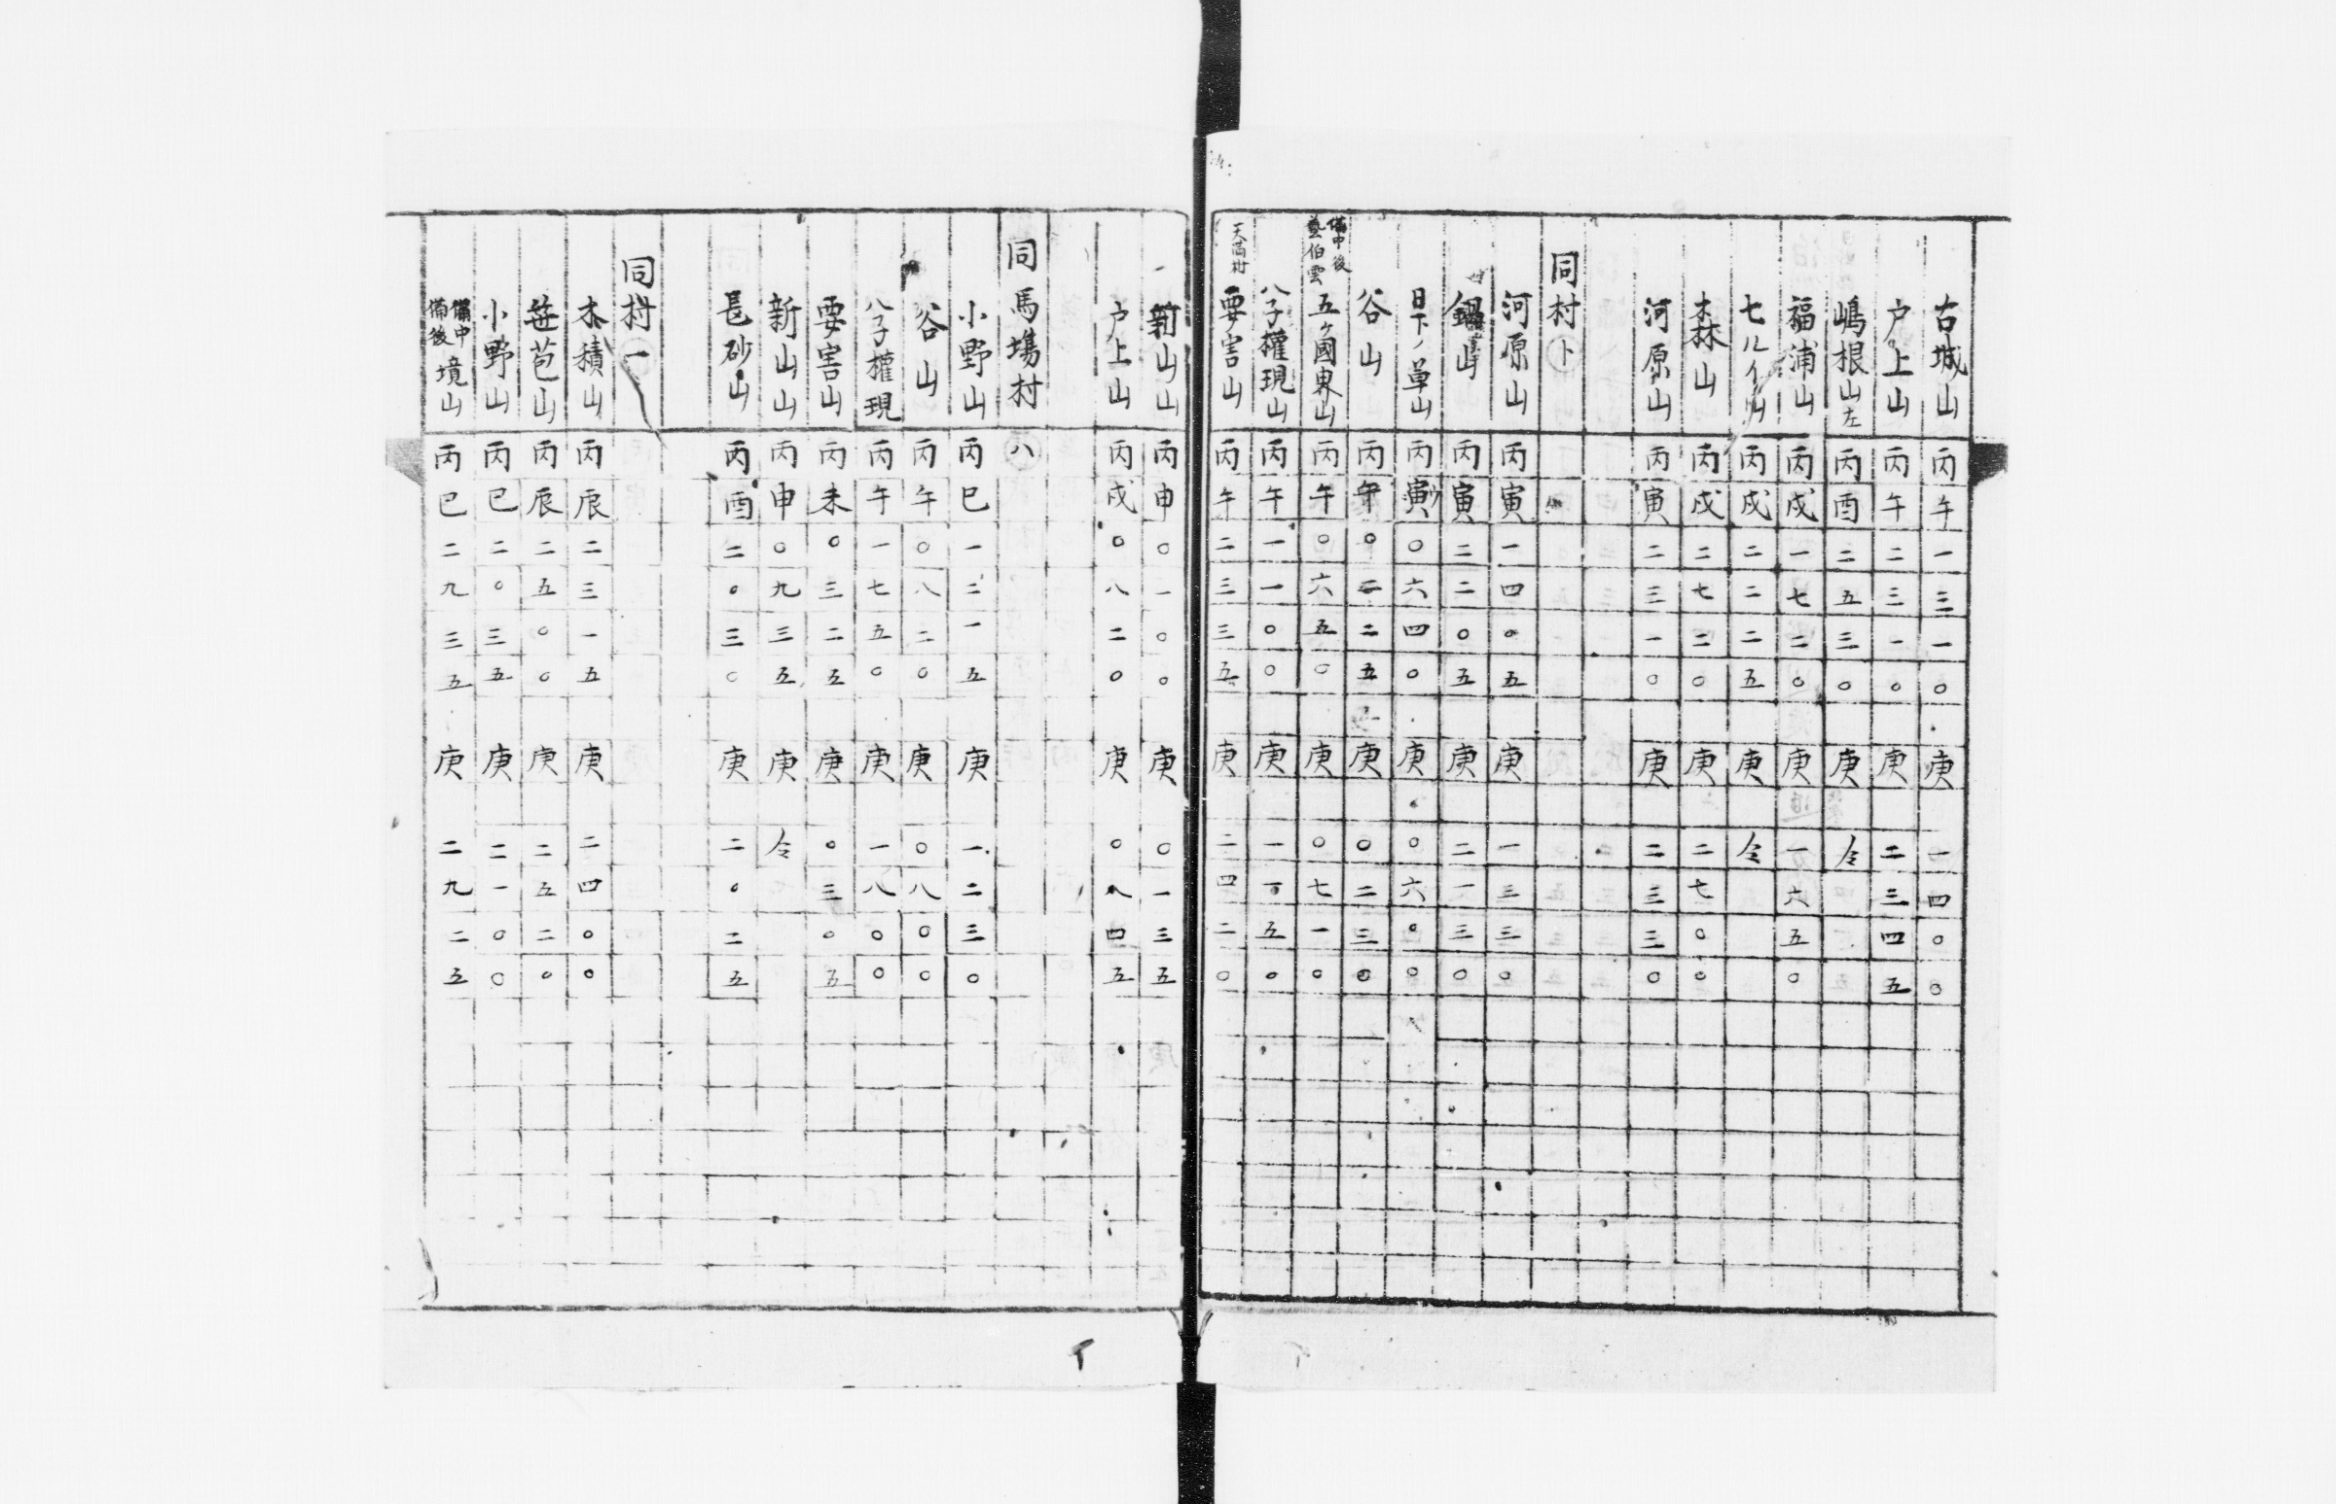 古城山 丙午一三一〇 庚一四〇〇
戸上山 丙午二三一〇 庚二三四五
嶋根山左 丙酉二五三〇 庚仝
福浦山 丙戌一七二〇 庚一六五〇
七ルイ山 丙戌二二二五 庚仝
森山 丙戌二七二〇 庚二七〇〇
河原山 丙寅二三一〇 庚二三三〇
同村 ト
河原山 丙寅一四〇五 庚一三三〇
丙寅二二〇五 庚二一三〇
日下ノ單山 丙寅〇六四〇 庚〇六〇〇
谷山 丙午〇二二五 庚〇二三〇
備中後藝伯雲 五ケ國界山 丙午〇六五〇 庚〇七一〇
八子權現山 丙午一一〇〇 庚一一五〇
天満村 要害山 丙午二三三五 庚二四二〇
新山山 丙申〇一〇〇 庚〇一三五
戸上山 丙戌〇八二〇 庚〇八四五
同馬塲村 八
小野山 丙巳一二一五 庚一二三〇
谷山 丙午〇八二〇 庚〇八〇〇
八子權現 丙午一七五〇 庚一八〇〇
要害山 丙未〇三二五 庚〇三〇五
新山山 丙申〇九三五 庚仝
長砂山 丙酉二〇三〇 庚二〇二五
同村 一
木積山 丙辰二三一五 庚二四〇〇
笹苞山 丙辰二五〇〇 庚二五二〇
小野山 丙巳二〇三五 庚二一〇〇
備中備後境山 丙巳二九三五 庚二九二五